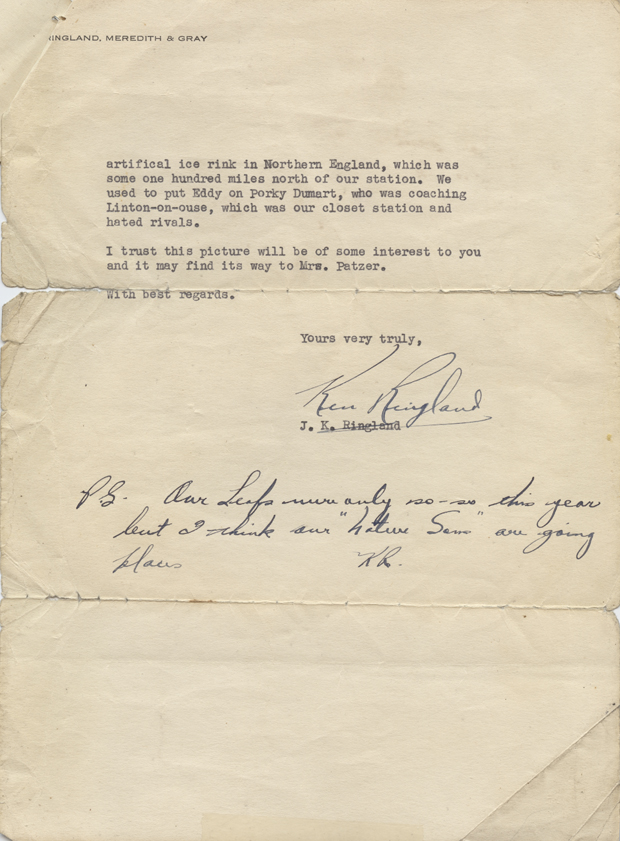 RINGLAND, MEREDITH & GRAY
artifical ice rink in Northern England, which was
some one hundred miles north of our station. We
used to put Eddy on Porky Dumart, who was coaching
Linton-on-ouse, which was our closet station and
hated rivals.
I trust this picture will be of some interest to you
and it may find its way to Mrs. Patzer.
With best regards.
Yours very truly,
Ken Ringland
J. K. Ringland
P.S. Our Leafs were only so-so this year
but I think our "Native Sons" are going
places KR.